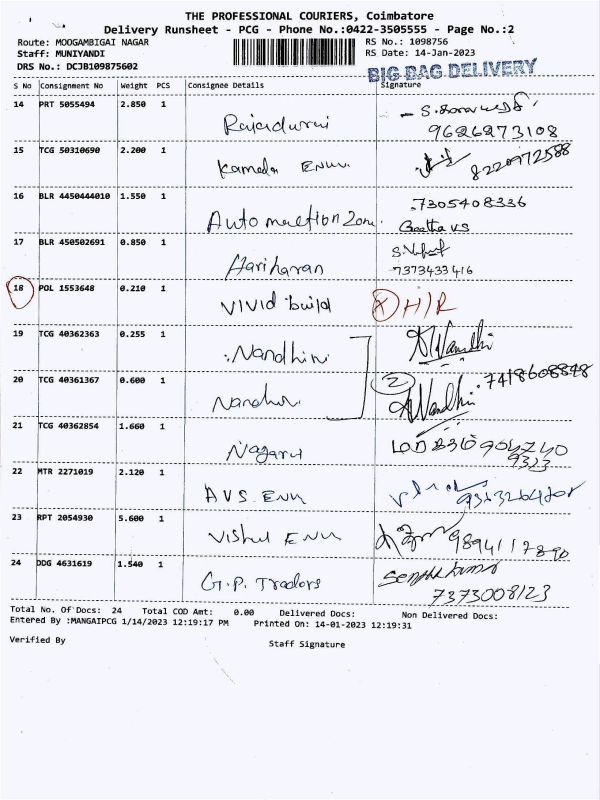 THE PROFESSIONAL COURIERS, Coimbatore
Delivery Runsheet - PCG - Phone No.:0422-3505555 - Page No.:2
Route: MOOGAMBIGAI NAGAR RS No.: 1098756
Staff: MUNIYANDI RS Date: 14-Jan-2023
DRS No.: DCJB109875602 BIG BAG DELIVERY
S No Consignment No Weight PCS Consignee Details Signature
14 PRT 5055494 2.850 1
Rajadurai 9626273108
15 TCG 50310690 2.200 1
8220972588
16 BLR 4450444010 1.550 1 7305408336
Geetha K S
17 BLR 450502691 0.850 1
Hariharan 7373433416
18 POL 1553648 0.210 1
VIVID build X H/R
19 TCG 40362363 0.255 1
Nandhini
20 TCG 40361367 0.600 1 2 7418608848
21 TCG 40362854 1.660 1
22 MTR 2271019 2.120 1
A.V.S. Enn
23 RPT 2054930 5.600 1
9894117890
24 DDG 4631619 1.540 1 Senthilkumar
G.P. Traders 7373008123
Total No. Of Docs: 24 Total COD Amt: 0.00 Delivered Docs: Non Delivered Docs:
Entered By :MANGAIPCG 1/14/2023 12:19:17 PM Printed On: 14-01-2023 12:19:31
Verified By Staff Signature